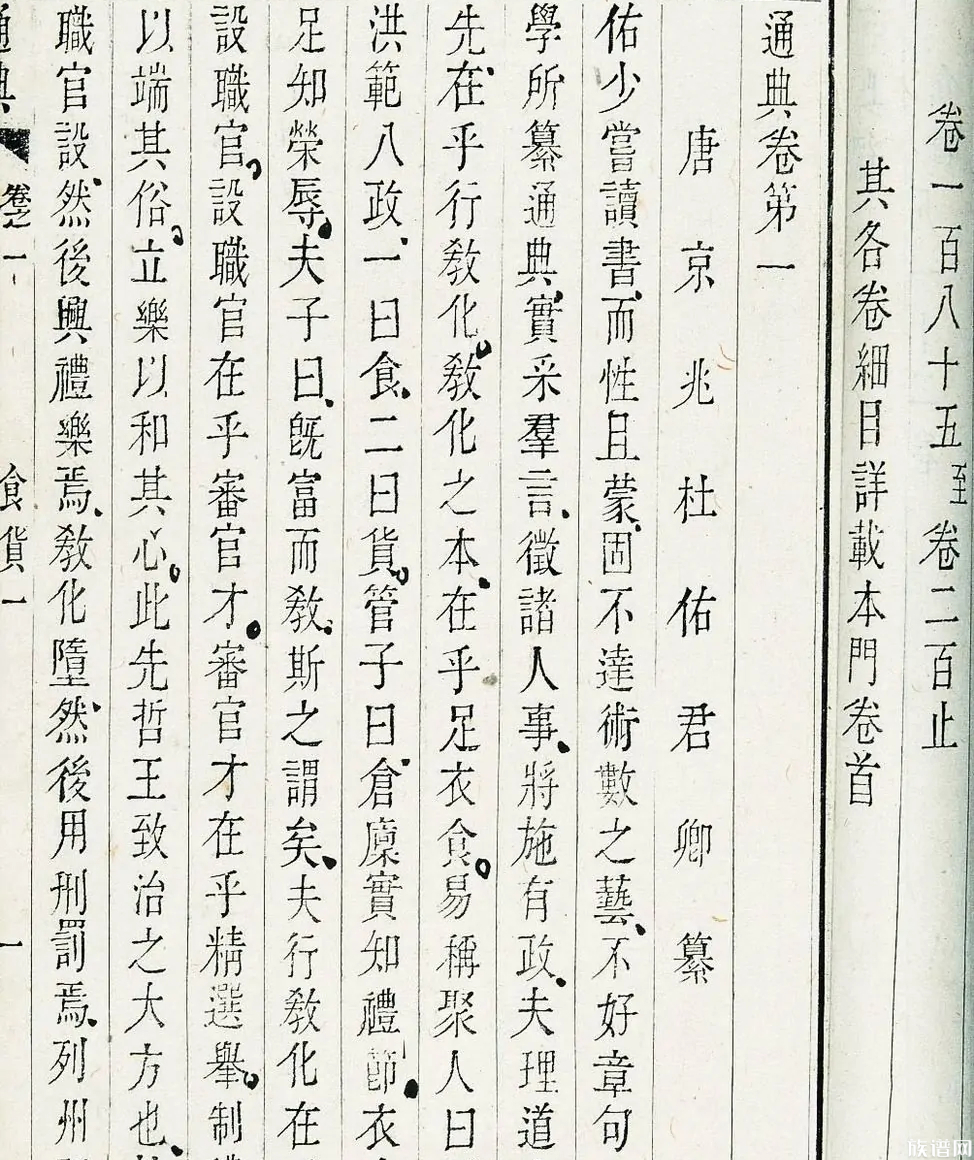 卷一百八十五至卷二百止
其各卷細目詳載本門卷首
通典卷第一
唐京兆杜佑君卿纂
佑少嘗讀書而性且蒙固不達術數之藝不好章句
學所纂通典實采羣言徵諸人事將施有政夫理道
先在乎行敎化敎化之本在乎足衣食易稱聚人曰
洪範八政一曰食二曰貨管子曰倉廩實知禮節衣
足知榮辱夫子曰旣富而敎斯之謂矣夫行敎化在
設職官設職官在乎審官才審官才在乎精選舉制
以端其俗立樂以和其心此先哲王致治之大方也
職官設然後興禮樂焉敎化墮然後用刑罰焉列州
通典 卷之一 食貨一 一
族谱网